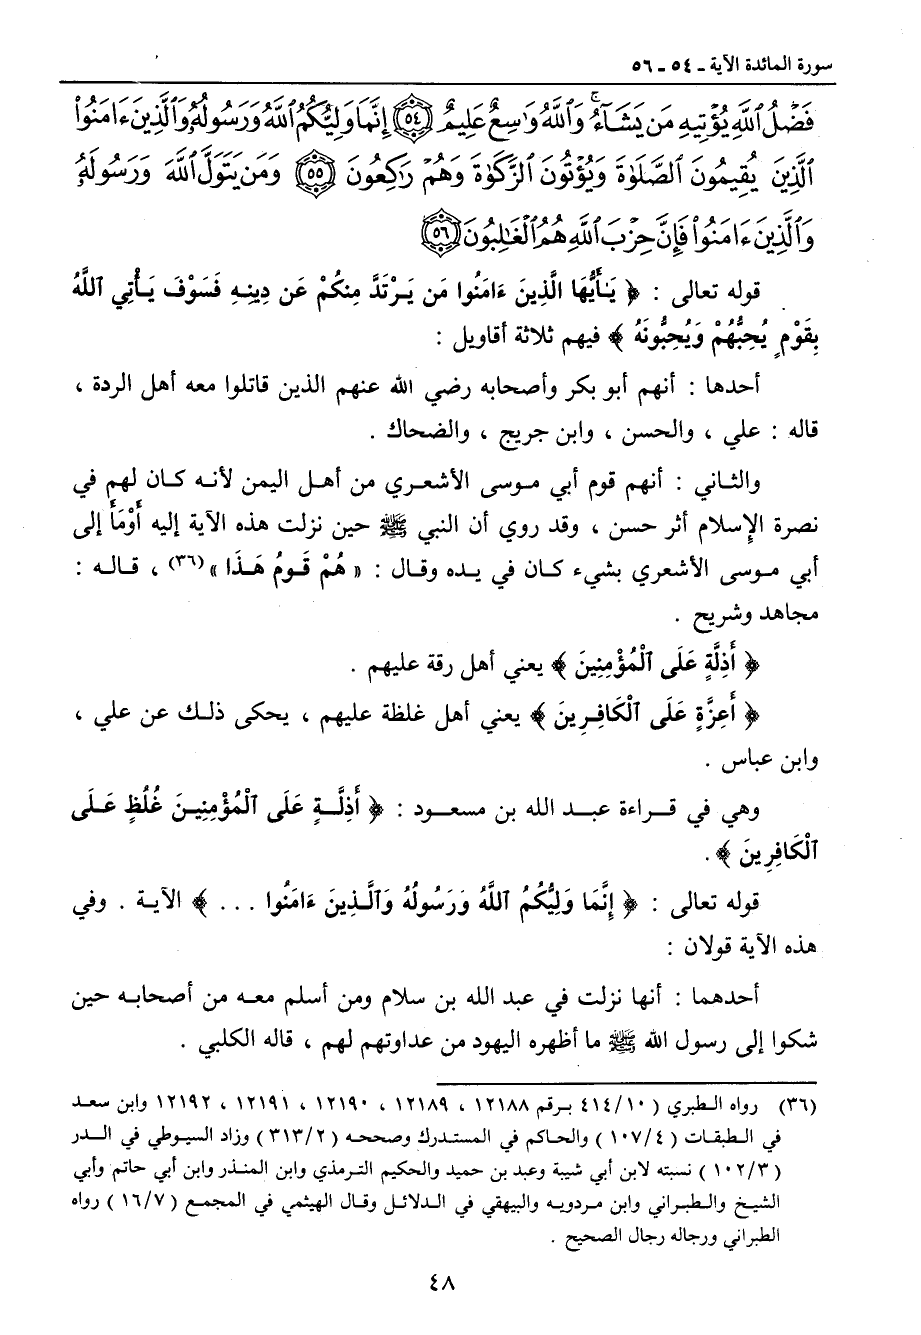 سورة المائدة الآية ـ ٥٤ ـ ٥٦
فَضْلُ ٱللَّهِ يُؤْتِيهِ مَن يَشَآءُ ۚ وَٱللَّهُ وَٰسِعٌ عَلِيمٌ ﴿٥٤﴾ إِنَّمَا وَلِيُّكُمُ ٱللَّهُ وَرَسُولُهُۥ وَٱلَّذِينَ ءَامَنُوا۟
ٱلَّذِينَ يُقِيمُونَ ٱلصَّلَوٰةَ وَيُؤْتُونَ ٱلزَّكَوٰةَ وَهُمْ رَٰكِعُونَ ﴿٥٥﴾ وَمَن يَتَوَلَّ ٱللَّهَ وَرَسُولَهُۥ
وَٱلَّذِينَ ءَامَنُوا۟ فَإِنَّ حِزْبَ ٱللَّهِ هُمُ ٱلْغَٰلِبُونَ ﴿٥٦﴾
قوله تعالى : ﴿ يَـٰأَيُّهَا الَّذِينَ ءَامَنُوا مَن يَرْتَدَّ مِنكُمْ عَن دِينِهِ فَسَوْفَ يَأْتِي ٱللَّهُ
بِقَوْمٍ يُحِبُّهُمْ وَيُحِبُّونَهُ ﴾ فيهم ثلاثة أقاويل :
أحدها : أنهم أبو بكر وأصحابه رضي الله عنهم الذين قاتلوا معه أهل الردة ،
قاله : علي ، والحسن ، وابن جريج ، والضحاك .
والثاني : أنهم قوم أبي موسى الأشعري من أهل اليمن لأنه كان لهم في
نصرة الإسلام أثر حسن ، وقد روي أن النبي ﷺ حين نزلت هذه الآية إليه أَوْمَأَ إلى
أبي موسى الأشعري بشيء كان في يده وقال : « هُمْ قَومُ هَذَا »(٣٦) ، قاله :
مجاهد وشريح .
﴿ أَذِلَّةٍ عَلَى ٱلْمُؤْمِنِينَ ﴾ يعني أهل رقة عليهم .
﴿ أَعِزَّةٍ عَلَى ٱلْكَافِرِينَ ﴾ يعني أهل غلظة عليهم ، يحكى ذلك عن علي ،
وابن عباس .
وهي في قراءة عبد الله بن مسعود : ﴿ أَذِلَّةٍ عَلَى ٱلْمُؤْمِنِينَ غُلُظٍ عَلَى
ٱلْكَافِرِينَ ﴾.
قوله تعالى : ﴿ إِنَّمَا وَلِيُّكُمُ ٱللَّهُ وَرَسُولُهُ وَٱلَّذِينَ ءَامَنُوا ... ﴾ الآية . وفي
هذه الآية قولان :
أحدهما : أنها نزلت في عبد الله بن سلام ومن أسلم معه من أصحابه حين
شكوا إلى رسول الله ﷺ ما أظهره اليهود من عداوتهم لهم ، قاله الكلبي .
(٣٦) رواه الطبري ( ٤١٤/١٠ برقم ١٢١٨٨ ، ١٢١٨٩ ، ١٢١٩٠ ، ١٢١٩١ ، ١٢١٩٢ وابن سعد
في الطبقات ( ١٠٧/٤ ) والحاكم في المستدرك وصححه ( ٣١٣/٢ ) وزاد السيوطي في الدر
( ١٠٢/٣ ) نسبته لابن أبي شيبة وعبد بن حميد والحكيم الترمذي وابن المنذر وابن أبي حاتم وأبي
الشيخ والطبراني وابن مردويه والبيهقي في الدلائل وقال الهيثمي في المجمع ( ١٦/٧ ) رواه
الطبراني ورجاله رجال الصحيح .
٤٨